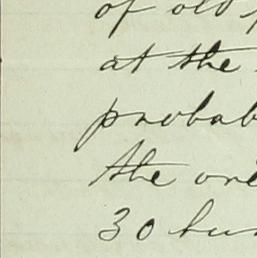 of old
at the
probab
the one
30 hun